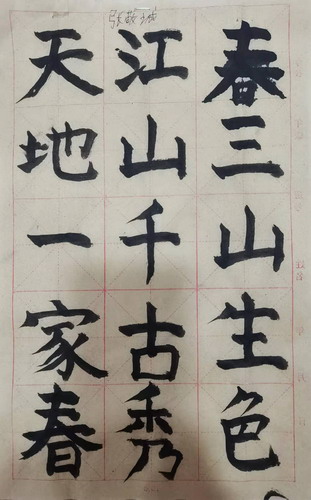 春三山生色
江山千古秀
天地一家春